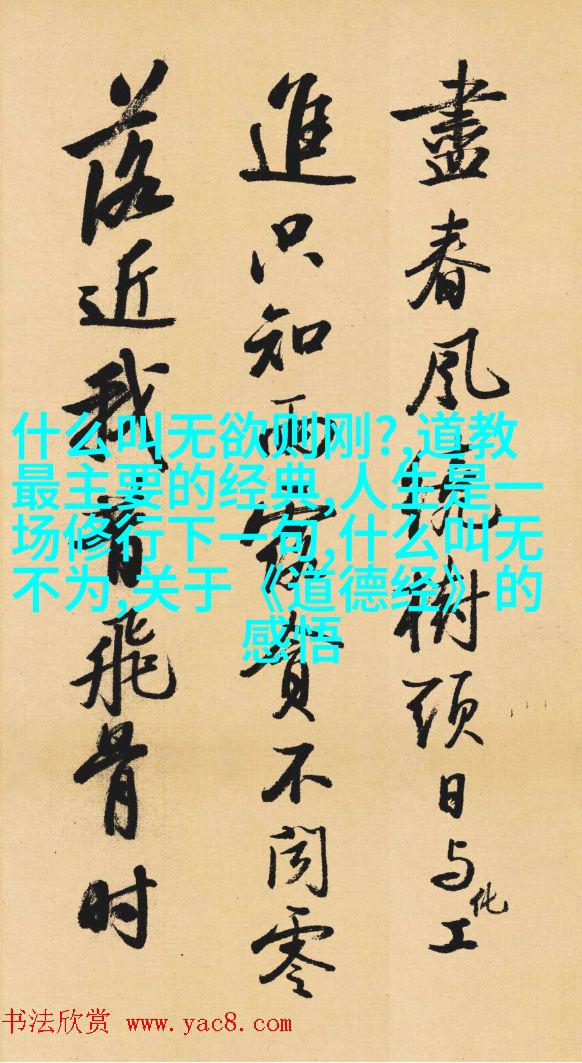 盡春風繞樹頭日与化工
進只知雨露貪不聞零
落近我昔飛骨时
什么叫无欲则刚?,道教
最主要的经典,人生是一
场修行下一句,什么叫无
不为,关于《道德经》的
感悟
书法欣赏 www.yac8.com